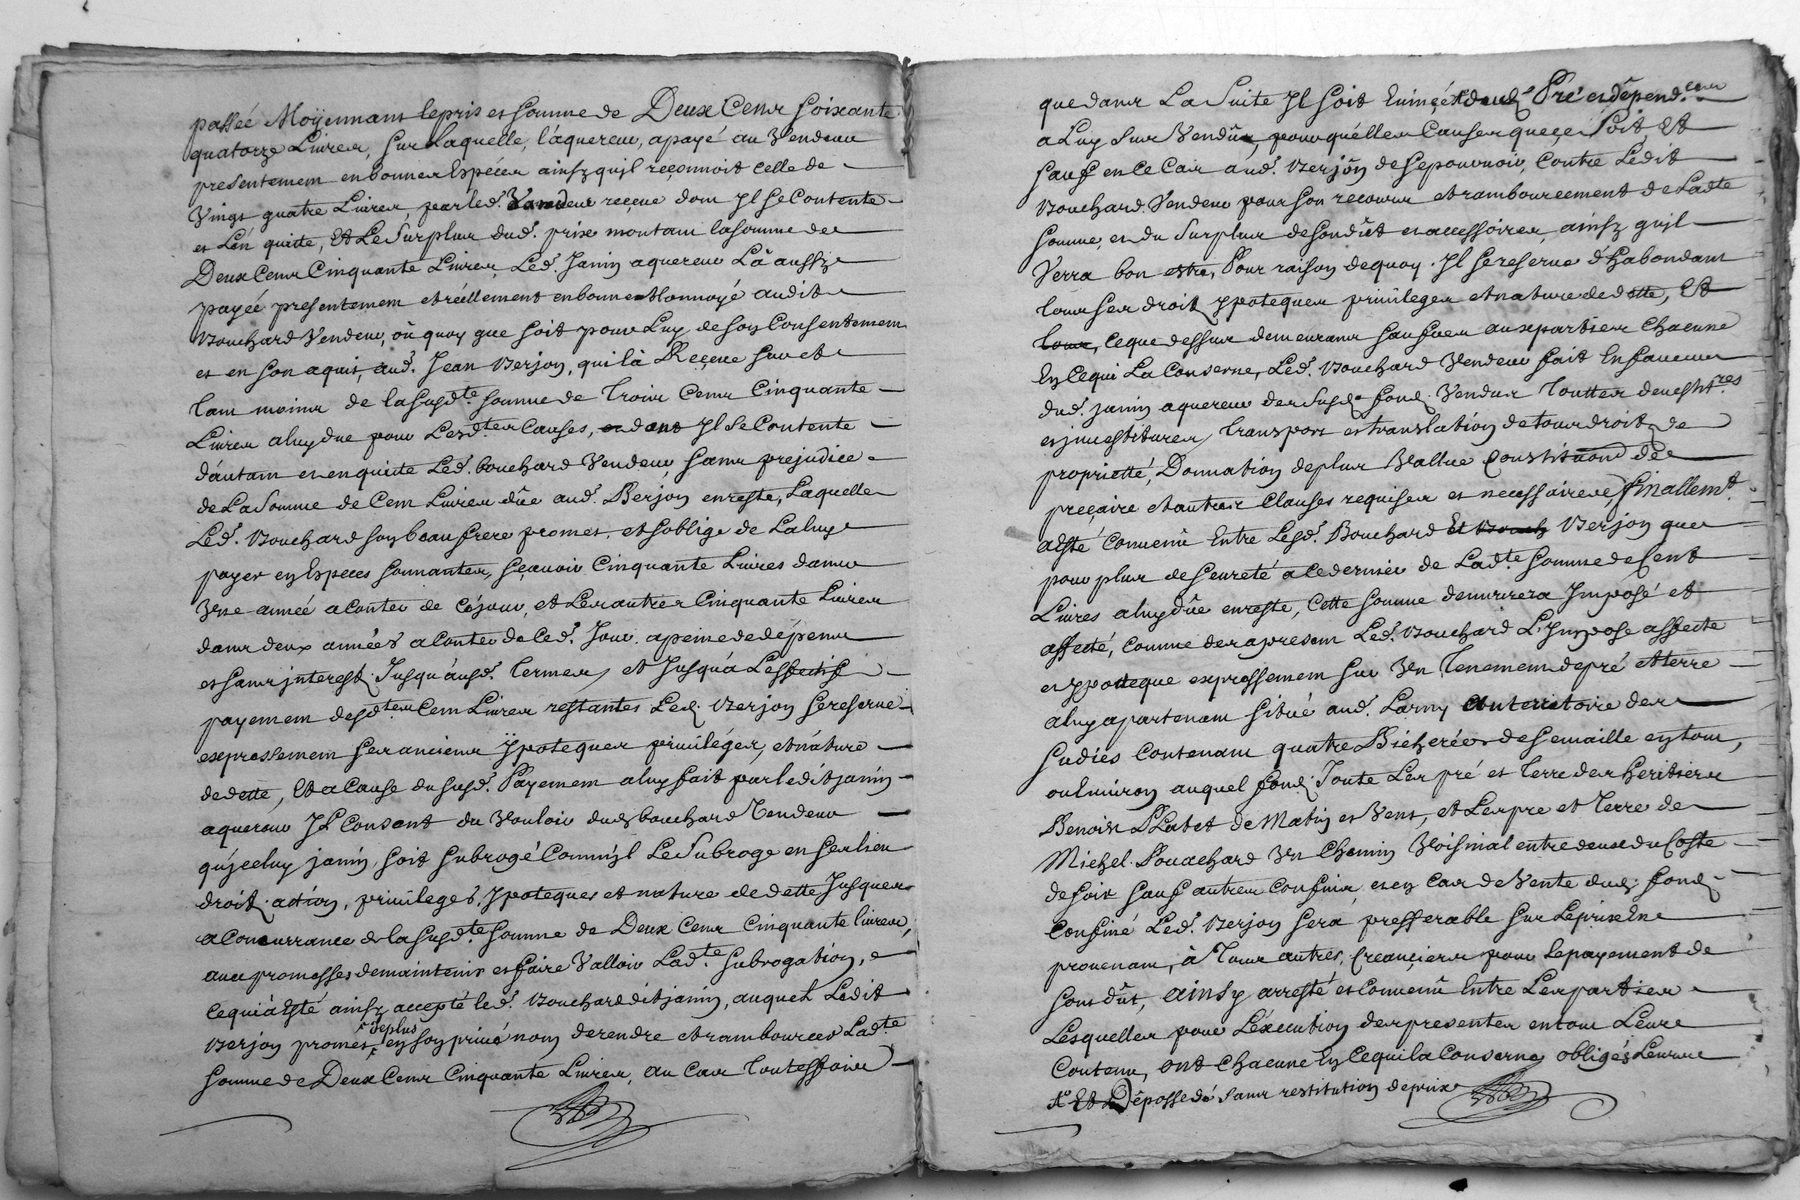 passée Moÿennant le pris et somme de Deux Cens soixante
quatorze Livres, sur Laquelle, l'áquereur, a payé au Vendeur
presentement en bonnes Especes ainsy quil reconnoit celle de
Vingt quatre Livres, par led. Vendeur reçeue dont Il se Contente
et L'en quitte, Et Le Surplus dud. prix montant la somme de
Deux Cens Cinquante Livres, Led. Janin aquereur L'à aussy
payée presentement et réellement en bonne Monnoyé audit
Bouchard Vendeur, où quoy que soit pour Luy, de son Consentement
et en son aquit, aud. Jean Berjon, qui l'à Reçeue sur et
tant moins de la susd.te somme de Trois Cens Cinquante
Livres a luy due pour Lesd.tes Causes, dont Il se Contente
d'autant et en quitte Led. bouchard Vendeur sans prejudice
de La Somme de Cent Livres dûe aud. Berjon en reste, Laquelle
Led. Bouchard son beau frere promet, et s'oblige de La luy
payer en Especes sonnantes, sçavoir Cinquante Livres dans
Une année a Conter de Céjour, et Les autres Cinquante Livres
dans deux années a Conter de Ced. Jour. a peine de dépens
et sans interest Jusqu'ausd. Termes, et Jusqu'à L'effectif
payement desd.tes Cent Livres restantes Led. Berjon se reserve
expressement ses anciens Ypoteques privilèges, et náture
de dette, Et a Cause du susd. Payement a luy fait par ledit janin
aquereur Il Consent du Vouloir dud. bouchard Vendeur
qu'jceluy janin, soit subrogé Comm'jl Le Subroge en ses lieu
droit action, privileges, Ypoteques et nature de dette Jusques
a Concurrance de la susd.te somme de Deux Cens Cinquante livres,
avec promesses de maintenir et faire Valloir Lad.te subrogation,
ce qui a Esté ainsy accepté led. Bouchard et janin, auquel Ledit
Berjon promet de plus en son privé nom de rendre et rambourcer Lad.te
somme de Deux Cens Cinquante Livres, au Cas Toutesfois
que dans La Suite Il soit Euincé dud. Pré et dépend.ces
a Luy Sus Vendû, pour quelles Causes que ce Soit Et
sauf en Ce Cas aud. Berjon de se pourvoir, Contre Ledit
Bouchard Vendeur pour son recours et rambourcement de Ladte
somme, et du Surplus de son dût et accessoires, ainsy quil
Verra bon estre, Pour raison de quoy Il se reserve d'Habondant
tous ses droits ypoteques privileges et nature de dette, Et
tout, Ce que dessus demeurant sauf aux parties Chacune
En Ce qui La Conserne, Led. Bouchard Vendeur fait En faveur
dud. janin aquereur des susd. fond Vendus Touttes devesht.res
et jnvestitures, Transport et translation de tous droits de
proprietté, Donnation de plus Vallue Constitution de
preçaire et autres Clauses requises et necessaires, finallemt.
a Esté Convenû Entre Lesd. Bouchard Et Berjon que
pour plus de seureté a Ce dernier de Lad.te somme de Cent
Livres a luy dûe en reste, Cette somme demurera Imposé et
affecté, comme des apresent Led. Bouchard L'Impose affecte
et ypotteque expressement sur Un Tenement de pré et terre
a luy apartenant situé aud. Larny au territoire des
sudiés Contenant quatre Bicherées de semaille en tout,
ou Environ auquel fond Joute Les pré et Terre des heritiers
Benoist Platet de Matin et Vent, et Les pre et Terre de
Michel Pouachard Un Chemin Voisinal entre deux du Coste
de soir sauf autres Confins, et en Cas de Vente dud. fond
Confiné Led. Berjon sera presferable sur Le prix En
provenant, à Tous autres, Creançiers pour le payement de
son dût, Ainsy arresté et Convenû Entre Les parties
Lesquelles pour L'éxecution des presentes en tout Leur
Contenu, ont Chacune En Ce qui la Conserne obligés Leurs
Et Dépossedé sans restitution de prix